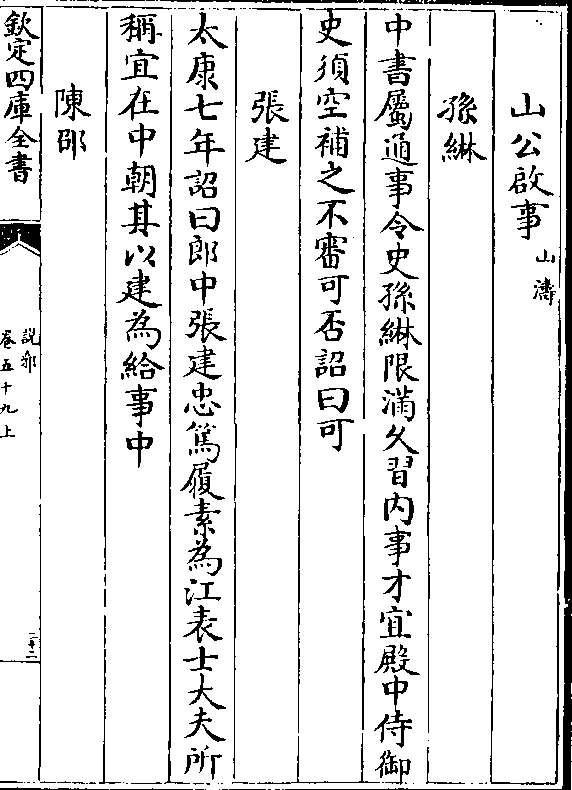 山公啟事山濤
孫綝
中書屬通事令史孫綝限滿久習内事才宜殿中侍御
史須空補之不審可否詔曰可
張建
太康七年詔曰郎中張建忠篤履素為江表士大夫所
稱宜在中朝其以建為給事中
陳邵
欽定四庫全書
說郛
卷五十九上